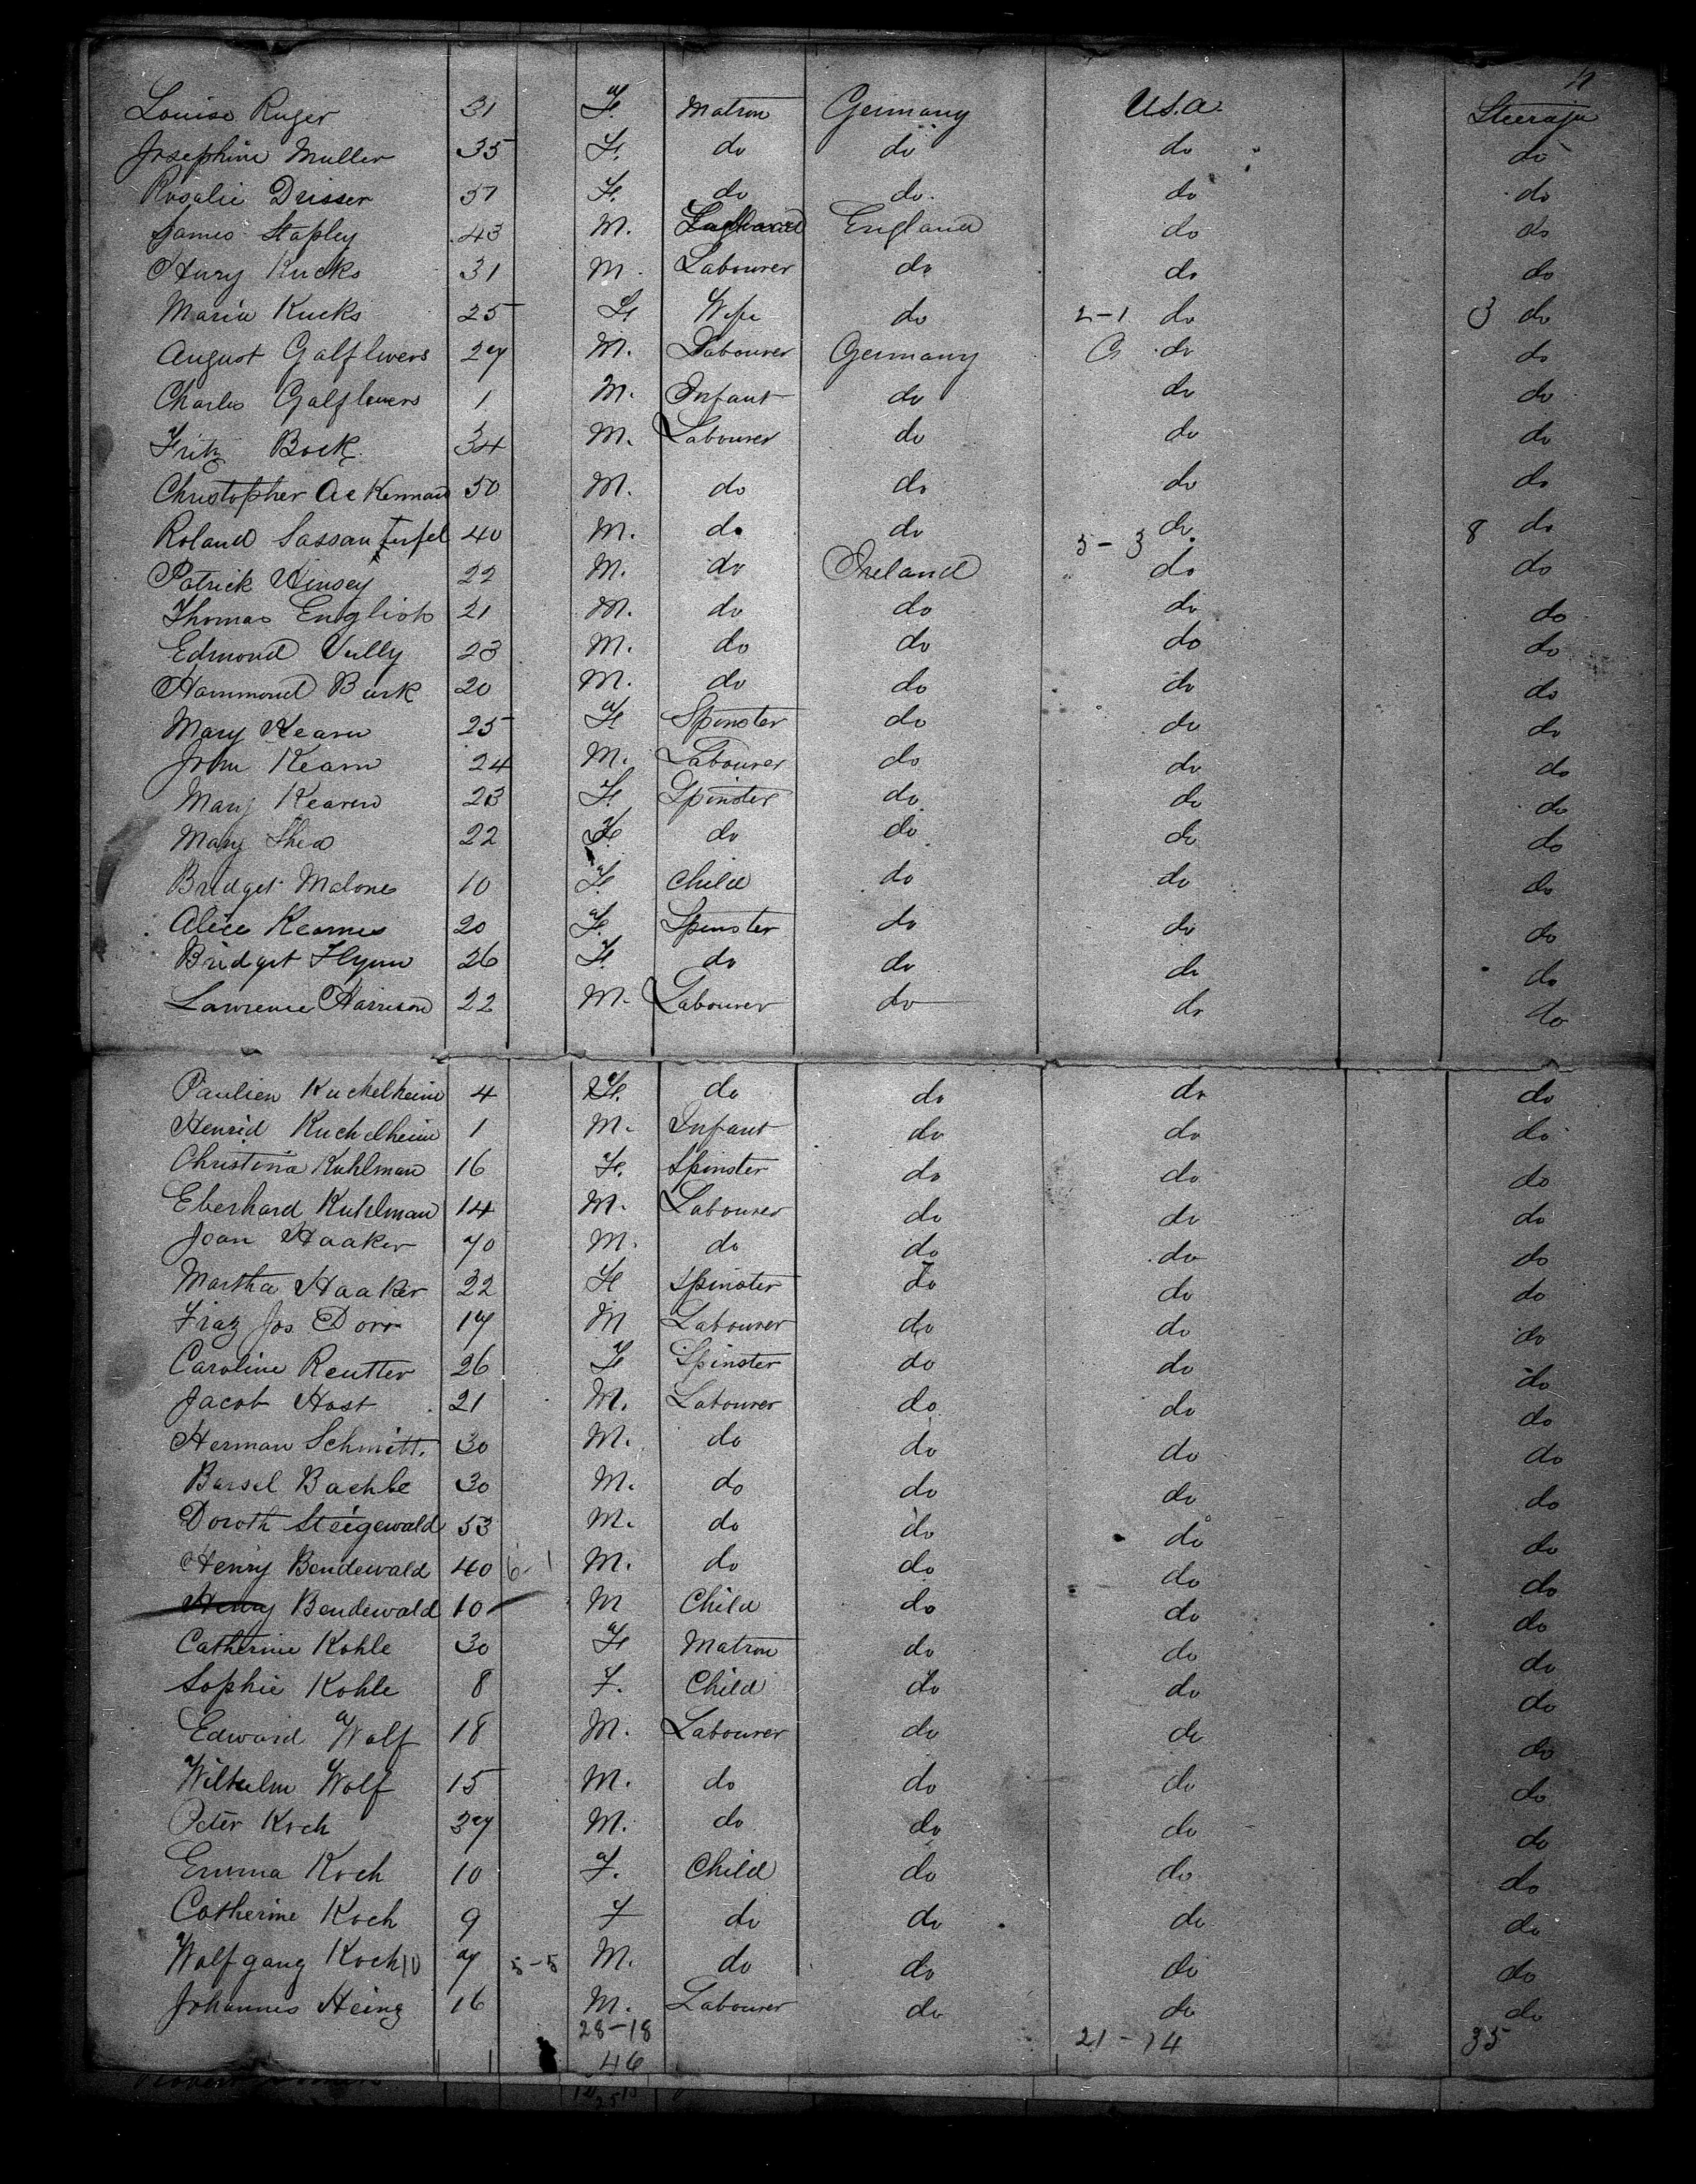 4
Louise Ruger 31 F. Matron Germany U.S.A. Steerage
Josephine Muller 35 F. do do do do
Rosalie Drisser 37 F. do do. do do
James Stapley 43 M. England do do
Henry Kucks 31 M. Labourer do do do
Maria Kucks 25 F Wife do 2-1 do 3 do
August Galflwers 27 M. Labourer Germany G do do
Charles Galflwers 1 M. Infant do do do
Fritz Bock 34 M. Labourer do do do
Christopher Ackerman 50 M. do do do do
Roland 40 M. do do 5-3 do 8 do
Patrick Hinsey 22 M. do Ireland do do
Thomas English 21 M. do do do do
Edmond Vully 23 M. do do do do
Hammond Burk 20 M. do do do do
Mary Kearn 25 F Spinster do do do
John Kearn 24 M. Labourer do do do
Mary Kearn 23 F Spinster do do do
Mary Shea 22 F. do do do do
Bridget Malone 10 F. Child do do do
Alice Kearnes 20 F. Spinster do do do
Bridget Flynn 26 F. do do do do
Lawrence Harrison 22 M. Labourer do do do
Paulien Kuchelheim 4 F. do do do do
Henrid Kuchelheim 1 M. Infant do do do
Christina Kuhlman 16 F. Spinster do do do
Eberhard Kuhlman 14 M. Labourer do do do
Joan Haaker 70 M. do do do do
Martha Haaker 22 F Spinster do do do
Fraz Jos. Dorr 17 M Labourer do do do
Caroline Reutter 26 F Spinster do do do
Jacob Host 21 M. Labourer do do do
Herman Schmitt. 30 M. do do do do
Barsel Bachle 30 M. do do do do
Doroth Steigewald 53 M. do do do do
Henry Bendewald 40 6-1 M. do do do do
Henry Bendewald 10 M Child do do do
Catherine Kohle 30 F Matron do do do
Sophie Kohle 8 F. Child do do do
Edward Wolf 18 M. Labourer do do do
Wilhelm Wolf 15 M. do do do do
Peter Koch 37 M. do do do do
Emma Koch 10 F. Child do do do
Catherine Koch 9 F do do do do
Wolfgang Koch 10 7 5-5 M. do do do do
Johannes Heinz 16 M. Labourer do do do
28-18 21-14 35
46